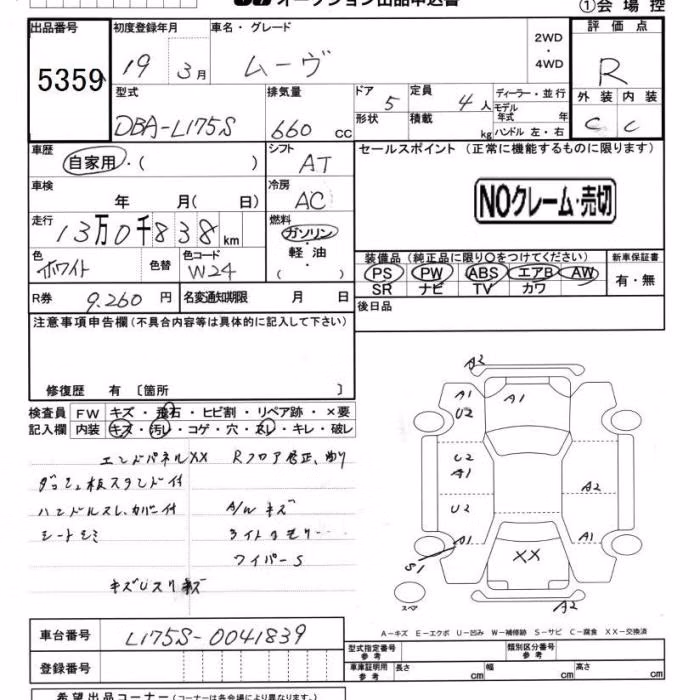 オークション出品申込書
①会場控
出品番号 初度登録年月 車名・グレード 2WD・4WD 評価点
5359 19 3月 ムーヴ R
型式 排気量 ドア 5 定員 4人 ディーラー・並行 外装 内装
モデル年式 年
DBA-L175S 660cc 形状 積載 kg ハンドル 左・右 C C
車歴 シフト セールスポイント(正常に機能するものに限ります)
自家用・( ) AT
NOクレーム・売切
車検 年 月( 日) 冷房 AC
走行 13万0千838km 燃料 ガソリン・軽油( )
装備品(純正品に限り○をつけてください) 新車保証書
色 ホワイト 色替 色コード W24
PS PW ABS エアB AW 有・無
SR ナビ TV カワ
R券 9.260円 名変通知期限 月 日 後日品
注意事項申告欄(不具合内容等は具体的に記入して下さい)
修復歴 有〔箇所 〕
検査員 FW キズ・飛石・ヒビ割・リペア跡・×要
記入欄 内装 キズ・汚レ・コゲ・穴・スレ・キレ・破レ
エンドパネルXX Rフロア
ダッシュ板スタンド付
ハンドルスレ、カバー付 A/W キズ
シートシミ ライトクモリ
ワイパーS
キズUスリキズ
A2
A1
U2
A1
U2
A1
A2
U2
A1
A1
S1
XX
スペア
A2
A-キズ E-エクボ U-凹み W-補修跡 S-サビ C-腐食 XX-交換済
車台番号 L175S-0041839
登録番号
型式指定番号 参考 類別区分番号 参考
車庫証明用 参考 長さ cm 幅 cm 高さ cm
希望出品コーナー(コーナーは各会場により異なります。)